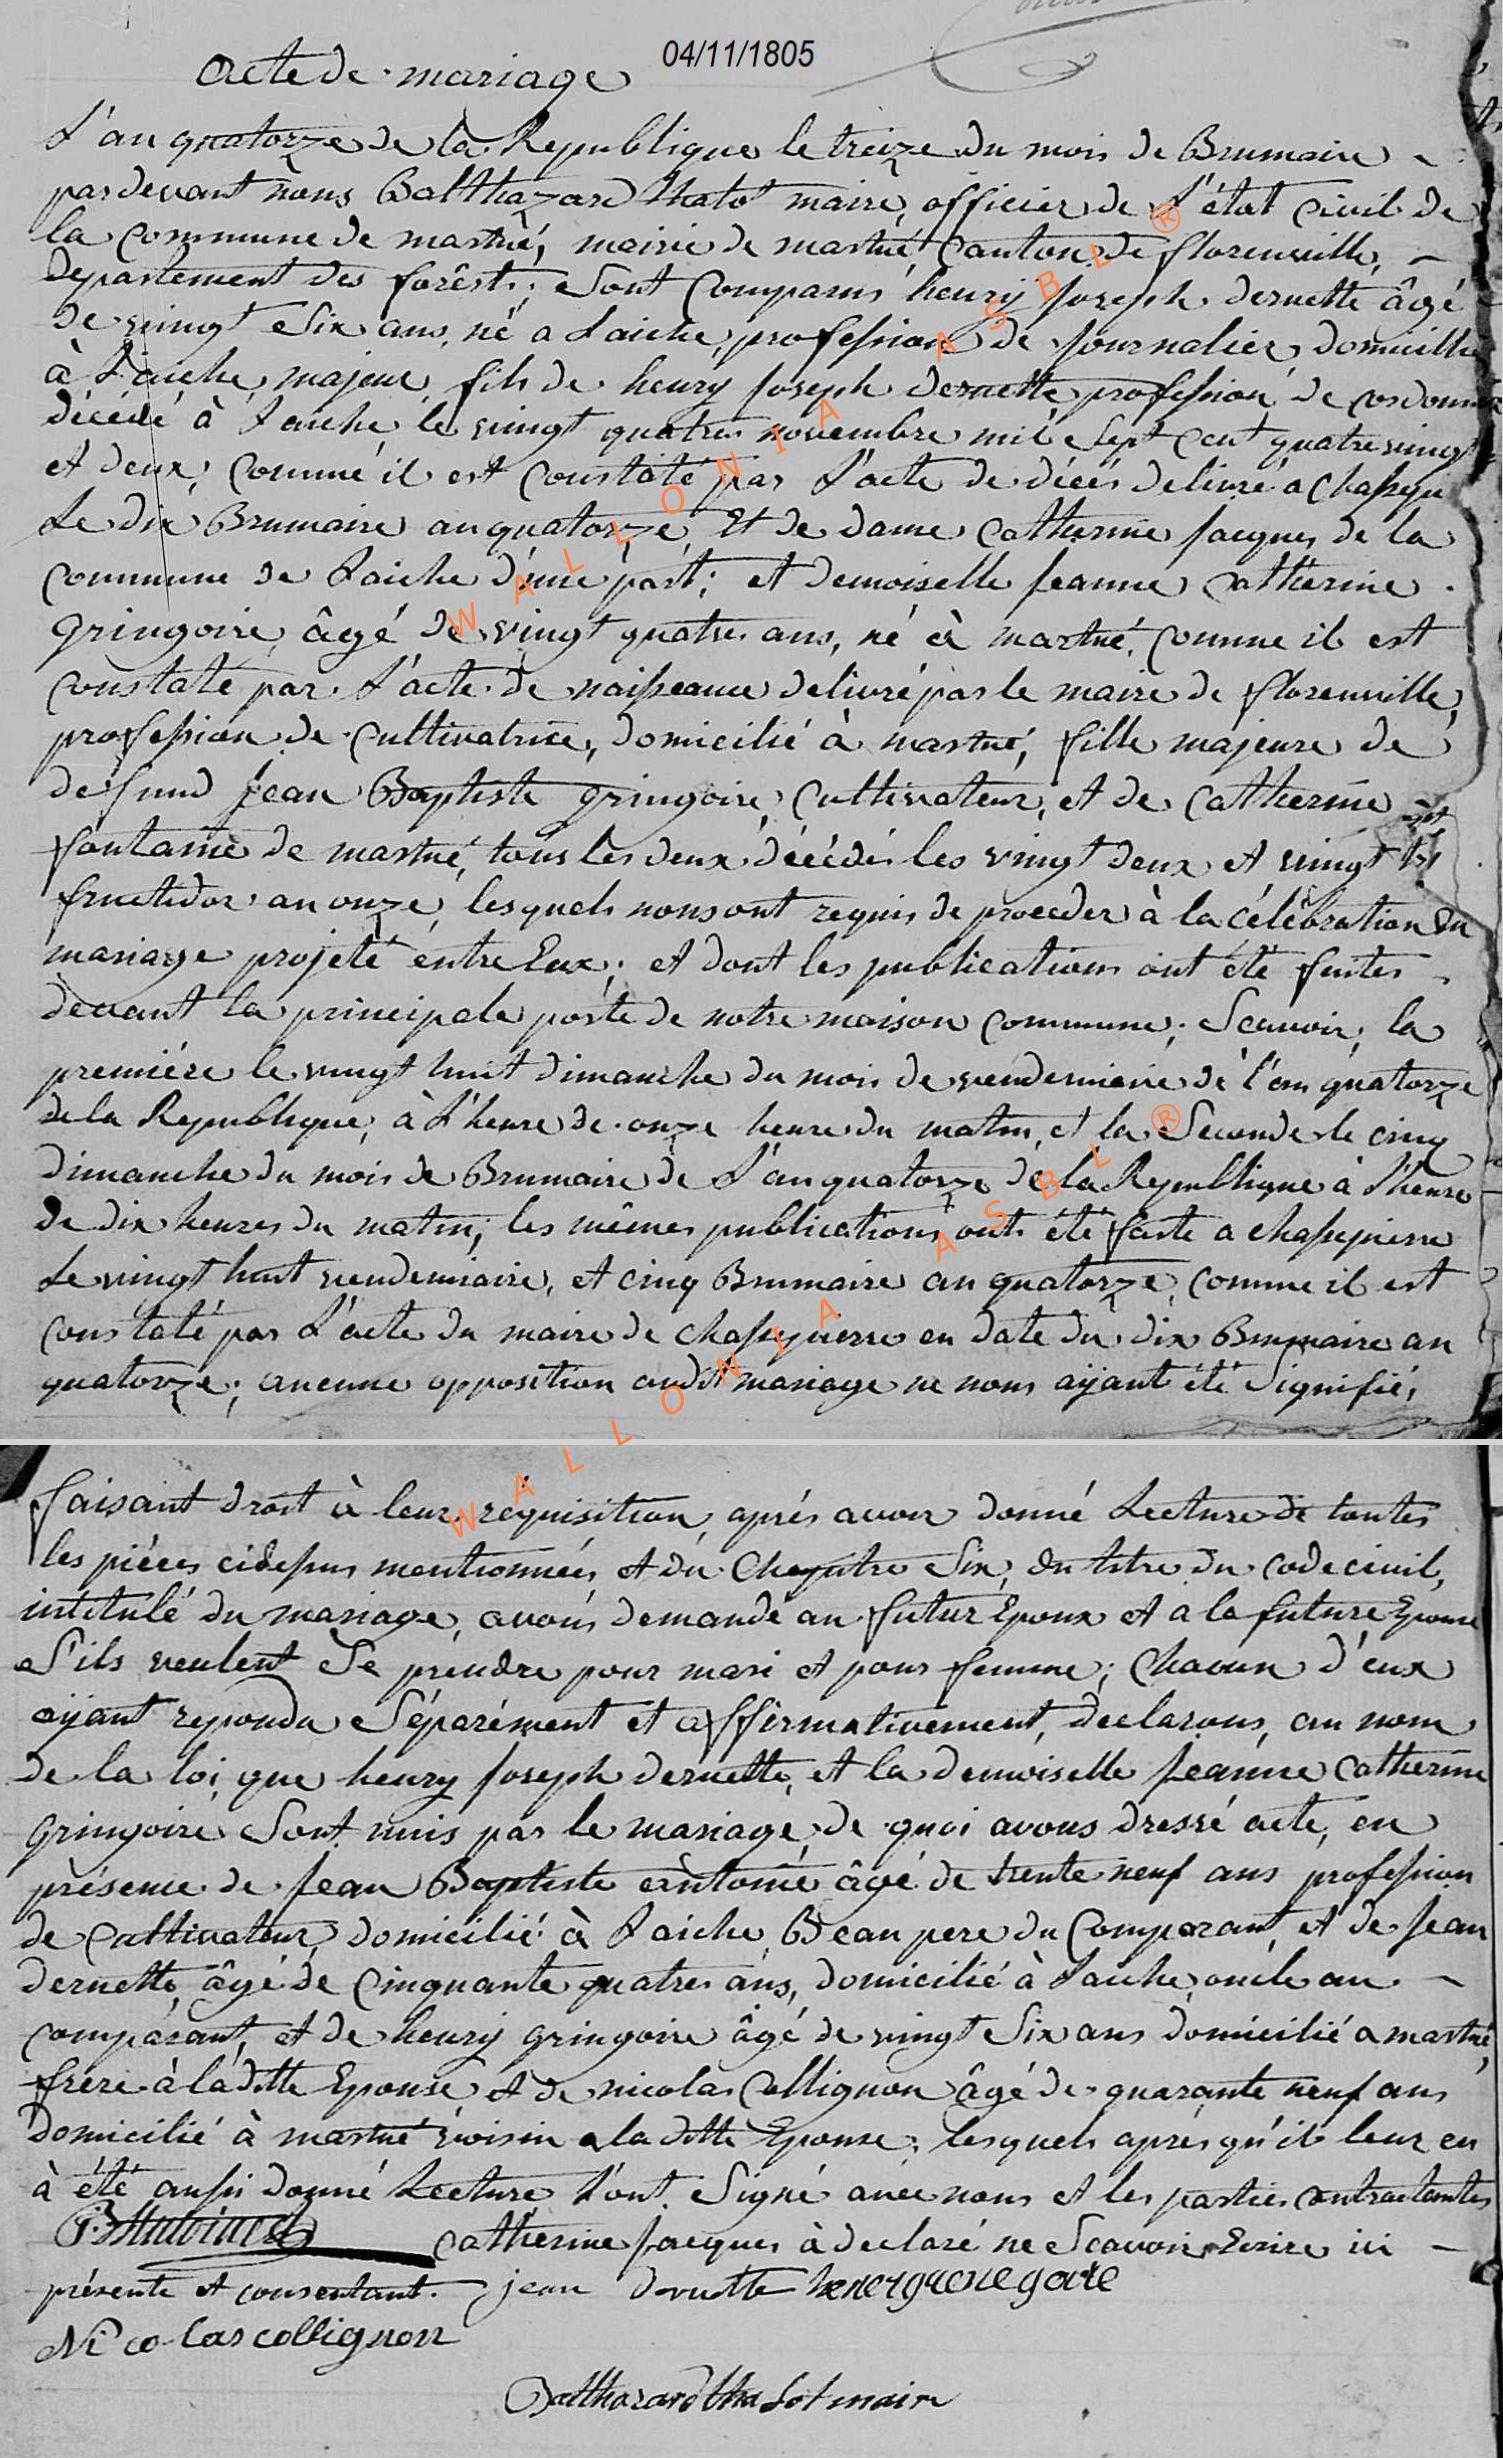 04/11/1805
acte de mariage
L'an quatorze de la Republique le treize du mois de Brumaire
pardevant nous Balthazard thatot maire, officier de L'état Civil de
la Commune de martué, mairie de martué Canton de florenville,
departement des forêsts; Sont Comparus henry Joseph dernette âgé
de vingt Six ans, né a Laiche, profession de Journalier, domicillié
à Laiche, majeur, fils de henry Joseph dernette profession de cordonnier
décédé à Laiche le vingt quatre novembre mil Sept Cent quatre vingt
et deux, Comme il est Constaté par L'acte de décés delivré a Chassepierre
Le dix Brumaire an quatorze Et de dame Catherine Jacques de la
Commune de Laiche d'une part; et demoiselle Jeanne Catherine
Gringoire, âgé de vingt quatre ans, né à martué, Comme il est
Constaté par L'acte de naisseance delivré par le maire de florenville,
profession de Cultivatrice, domicilié à martué, fille majeure de
defund Jean Baptiste gringoire, Cultivateur, et de Catherine
fontaine de martué, tous les deux décédés les vingt deux et vingt
fructidor an onze, lesquels nous ont requis de proceder à la Célébration du
mariage projeté entre Eux; et dont les publications ont été faites
devant la principale porte de notre maison Commune; Scavoir, la
premiére le vingt huit dimanche du mois de vendemiaire de l'an quatorze
de la Republique, à L'heure de onze heure du matin, et la Seconde le cinq
dimanche du mois de Brumaire de L'an quatorze de la Republique à L'heure
de dix heures du matin; les mêmes publications ont été faite a chassepierre
Le vingt huit vendemiaire, et cinq Brumaire an quatorze, Comme il est
Constaté par L'acte du maire de chassepierre en date du dix Brumaire an
quatorze; aucune opposition audit mariage ne nous aÿant été Signifié,
faisant droit à leur requisition, aprés avoir donné Lecture de toutes
les piéces cidessus mentionnées, et du Chapitre Six, du titre du Code civil,
intitulé du mariage, avons demandé au futur Epoux et a la future Epouse
S'ils veulent Se prendre pour mari et pour femme; Chacun d'eux
aÿant repondu Séparément et affirmativement, declarons, au nom
de la loi, que henry Joseph dernette, et la demoiselle Jeanne Catherine
gringoire Sont unis par le mariage, de quoi avons dressé acte, en
présence de Jean Baptiste antoine âgé de trente neuf ans profession
de Cultivateur, domicilié à Laiche, Beau pere du Comparant, et de Jean
dernette, âgé de Cinquante quatre ans, domicilié à Laiche, oncle au
comparant, et de henry gringoire âgé de vingt Six ans domicilié a martué,
frére à la ditte Epouse, et de nicolas Collignon âgé de quarante neuf ans
domicilié à martué voisin a la ditte Epouse; lesquels aprés qu'il leur en
à été aussi donné Lecture L'ont Signé avec nous et les parties contractantes
Catherine Jacques à declaré ne Scavoir Ecrire ici
présente et consentant. jean dernette
Nicolas collignon
Balthazard thatot maire
WALLONIA ASBL ®
WALLONIA ASBL ®